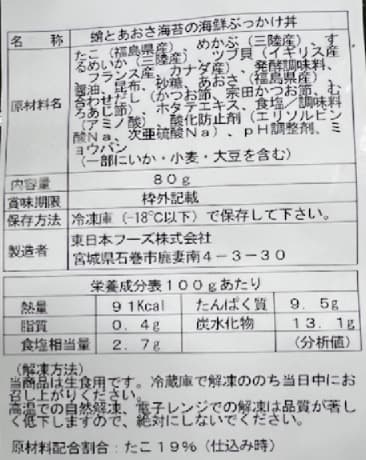 名　称　蛸とあおさ海苔の海鮮ぶっかけ丼
原材料名
たこ（福島県産）、めかぶ（三陸産）、す
るめいか（三陸産）、ツブ貝（イギリス産
、フランス産、カナダ産）、発酵調味料、
醤油、昆布、砂糖、あおさ（福島県産）、
合わせだし（かつお節、宗田かつお節、む
ろあじ節）、ホタテエキス、食塩／調味料
（アミノ酸）、酸化防止剤（エリソルビン
酸Ｎａ、次亜硫酸Ｎａ）、ｐＨ調整剤、ミ
ョウバン
（一部にいか・小麦・大豆を含む）
内容量　８０ｇ
賞味期限　枠外記載
保存方法　冷凍庫（-18℃以下）で保存して下さい。
製造者　東日本フーズ株式会社
宮城県石巻市鹿妻南４－３－３０
栄養成分表１００ｇあたり
熱量　９１Kcal　たんぱく質　９．５g
脂質　０．４g　炭水化物　１３．１g
食塩相当量　２．７g　（分析値）
（解凍方法）
当商品は生食用です。冷蔵庫で解凍ののち当日中にお
召し上がりください。
高温での自然解凍、電子レンジでの解凍は品質が著し
く低下しますので、絶対にしないでください。
原材料配合割合：たこ１９％（仕込み時）